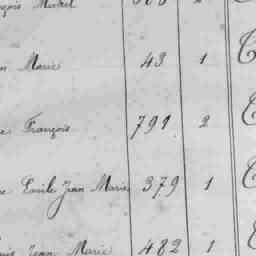 Michel
Marie 43 1
François 791 2
Emile Jean Marie 379 1
Jean Marie 482 1